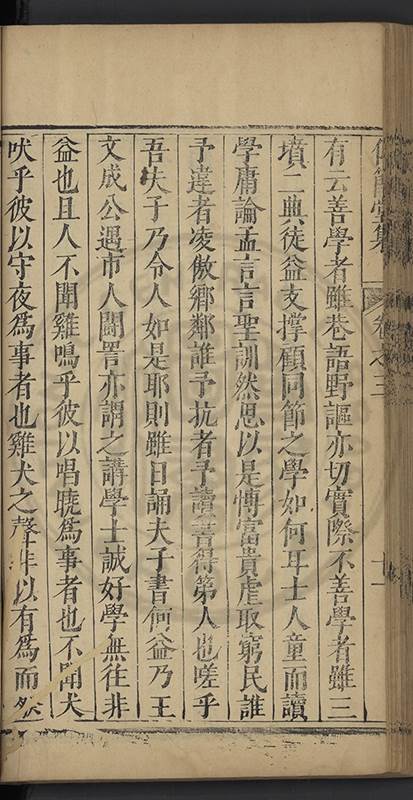 集 卷之三
有云善學者雖巷語野謳亦切實際不善學者雖三
墳二典徒益支撐顧同節之學如何耳士人童而讀
學庸論孟言言聖訓然思以是博富貴虐取窮民誰
予違者凌傲鄉鄰誰予抗者予讀書得第人也嗟乎
吾夫子乃令人如是耶則雖日誦夫子書何益乃王
文成公遇市人鬪詈亦謂之講學士誠好學無往非
益也且人不聞雞鳴乎彼以唱曉為事者也不聞犬
吠乎彼以守夜為事者也雞犬之聲非以有為而然